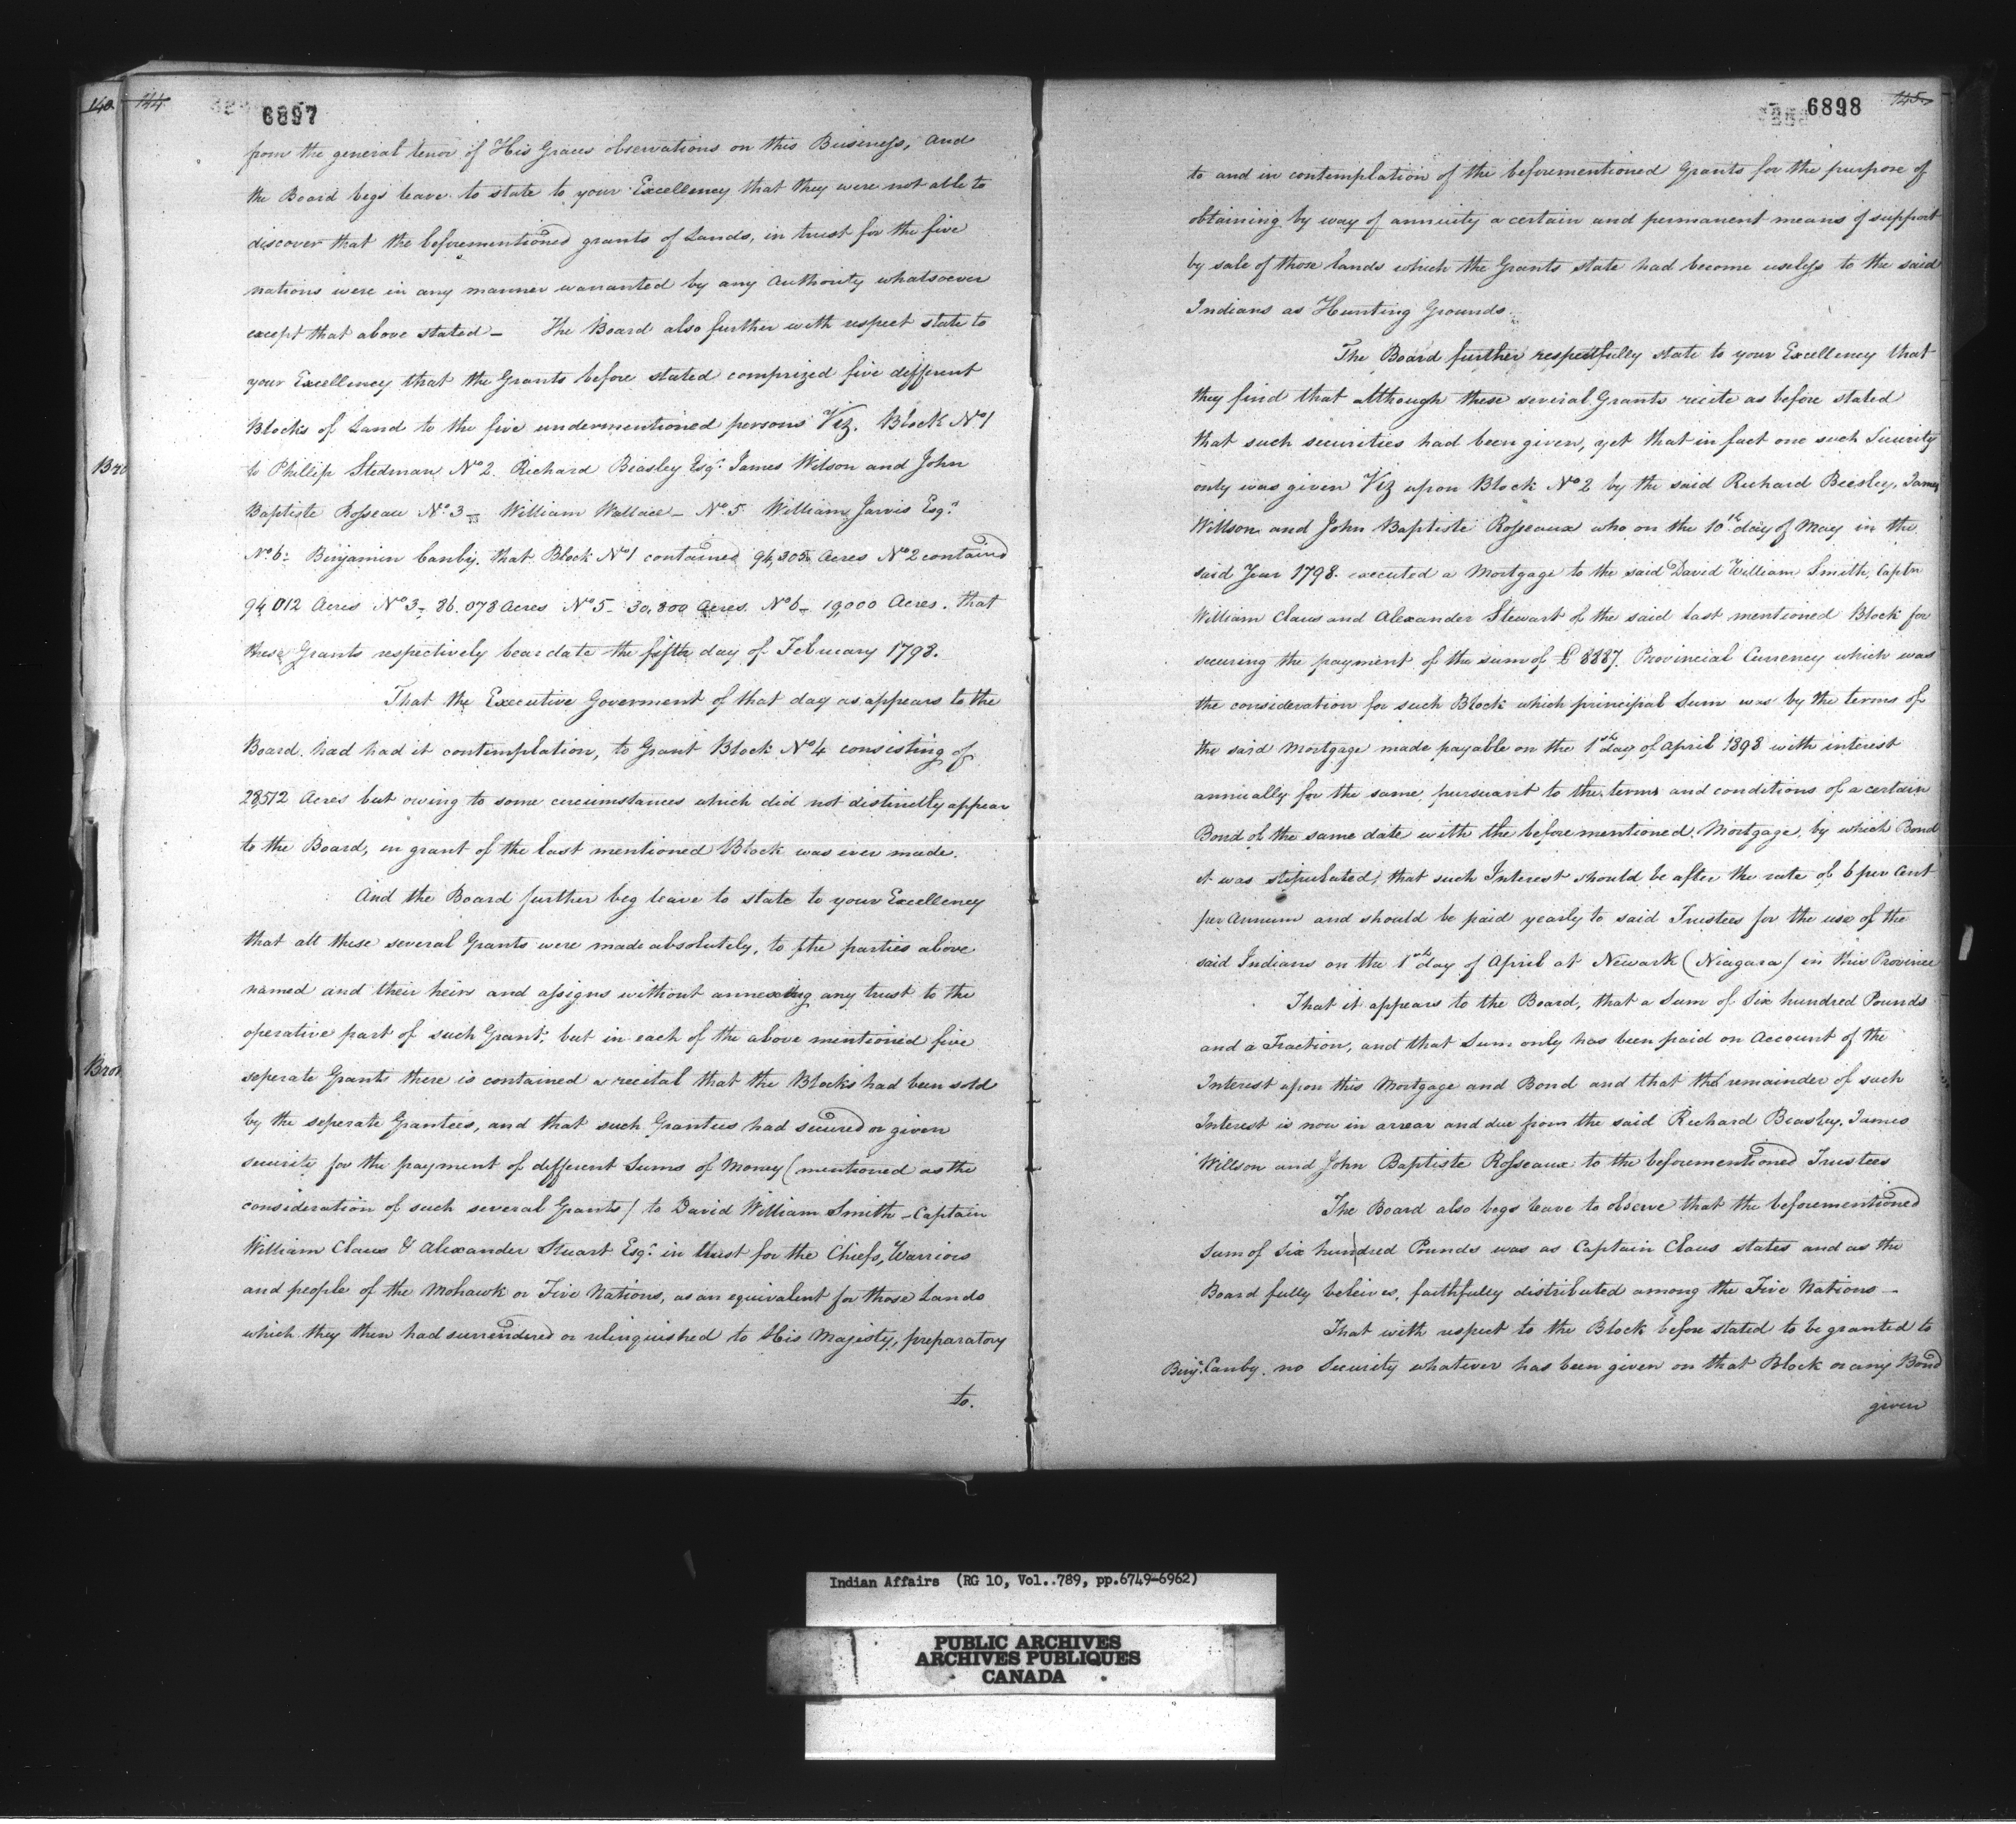 140
144
6897
from the general tenor of His Graces observations on this Business, and
the Board begs leave to state to your Excellency that they were not able to
discover that the beforementioned grants of Lands, in trust for the five
nations were in any manner warranted by any Authority whatsoever
except that above stated – The Board also further with respect state to
your Excellency that the Grants before stated comprized five different
Blocks of Land to the five undermentioned persons Viz. Block No 1
to Phillip Stedman No 2. Richard Beasley Esqr. James Wilson and John
Baptiste Rosseau No. 3 – William Wallace – No. 5 William Jarvis Esqr.
No 6: Benjamin Canby. that Block No 1 contained 94,305 Acres No 2 contained
94 012 Acres No 3 – 86.078 Acres No 5 – 30,800 Acres. No 6 – 19,000 Acres. that
these Grants respectively bear date the fifth day of February 1798.
That the Executive Goverment of that day as appears to the
Board. had had it contemplation, to Grant Block No 4 consisting of
28,512 Acres but owing to some circumstances which did not distinctly appear
to the Board, en grant of the last mentioned Block was ever made.
And the Board further beg leave to state to your Excellency
that all these several Grants were made absolutely, to the parties above
named and their heirs and assigns without annexing any trust to the
operative part of such Grant; but in each of the above mentioned five
seperate Grants there is contained a recital that the Blocks had been sold
by the seperate Grantees, and that such Grantees had secured or given
security for the payment of different Sums of Money (mentioned as the
consideration of such several Grants) to David William Smith – Captain
William Claus & Alexander Stuart Esqr. in trust for the Chiefs, Warriors
and people of the Mohawk or Five Nations, as an equivalent for those Lands
which they then had surrendered or relinquished to His Majesty, preparatory
to.
Bro
Bron
6898
145
to and in contemplation of the beforementioned Grants for the purpose of
obtaining by way of annuity a certain and permanent means of support
by sale of those lands which the Grants state had become useless to the said
Indians as Hunting Grounds.
The Board further respectfully state to your Excellency that
they find that although these several Grants recite as before stated
that such securities had been given, yet that in fact one such Security
only was given Viz upon Block No 2 by the said Richard Beesley, James
Willson and John Baptiste Rosseaux who on the 10th day of May in the
said Year 1798. executed a Mortgage to the said David William Smith, Captn
William Claus and Alexander Stewart of the said last mentioned Block for
securing the payment of the sum of £ 8887. Provincial Currency which was
the consideration for such Block which principal Sum was by the terms of
the said Mortgage made payable on the 1st day of April 1898 with interest
annually for the same, pursuant to the terms and conditions of a certain
Bond of the same date with the beforementioned Mortgage, by which Bond
it was stipulated, that such Interest should be after the rate of 6 per Cent
per Annum and should be paid yearly to said Trustees for the use of the
said Indians on the 1st day of April at Newark (Niagara) in this Province
That it appears to the Board, that a Sum of Six hundred Pounds
and a Fraction, and that Sum only has been paid on Account of the
Interest upon this Mortgage and Bond and that the remainder of such
Interest is now in arrear and due from the said Richard Beasley. James
Willson and John Baptiste Rosseaux to the beforementioned Trustees
The Board also begs leave to observe that the beforementioned
Sum of Six hundred Pounds was as Captain Claus states and as the
Board fully beleives, faithfully distributed among the Five Nations –
That with respect to the Block before stated to be granted to
Benjn. Canby. no Security whatever has been given on that Block or any Bond
given
Indian Affairs (RG 10, Vol..789, pp.6749-6962)
PUBLIC ARCHIVES
ARCHIVES PUBLIQUES
CANADA